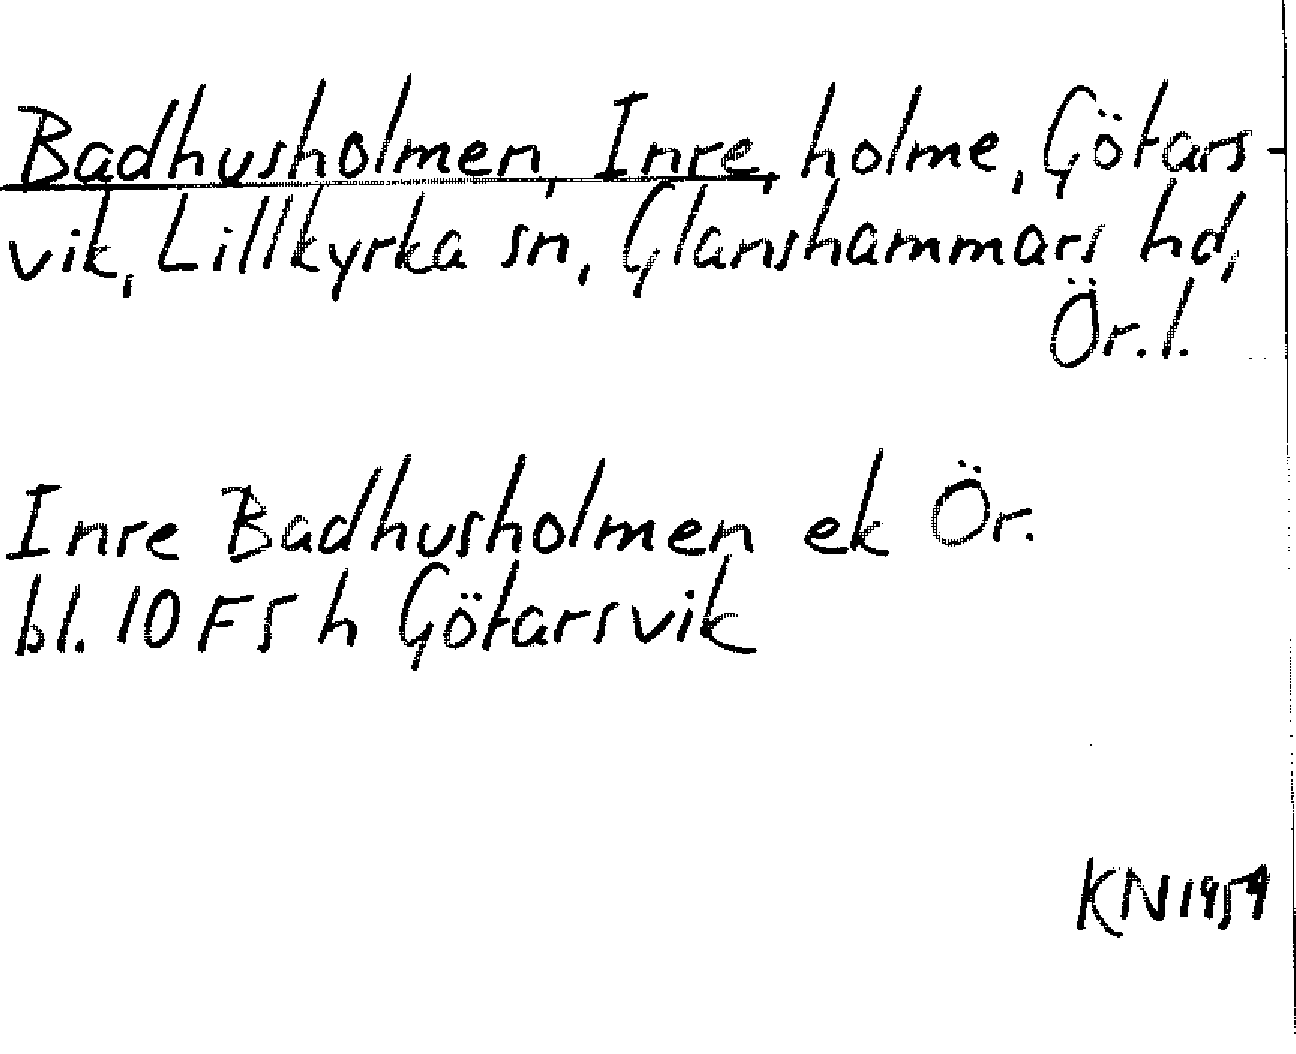 Badhusholmen, Inre, holme, Götars-
vik, Lillkyrka sn, Glanshammars hd,
Ör. l.
Inre Badhusholmen ek Ör.
bl. 10F5h Götarsvik
KN 1959